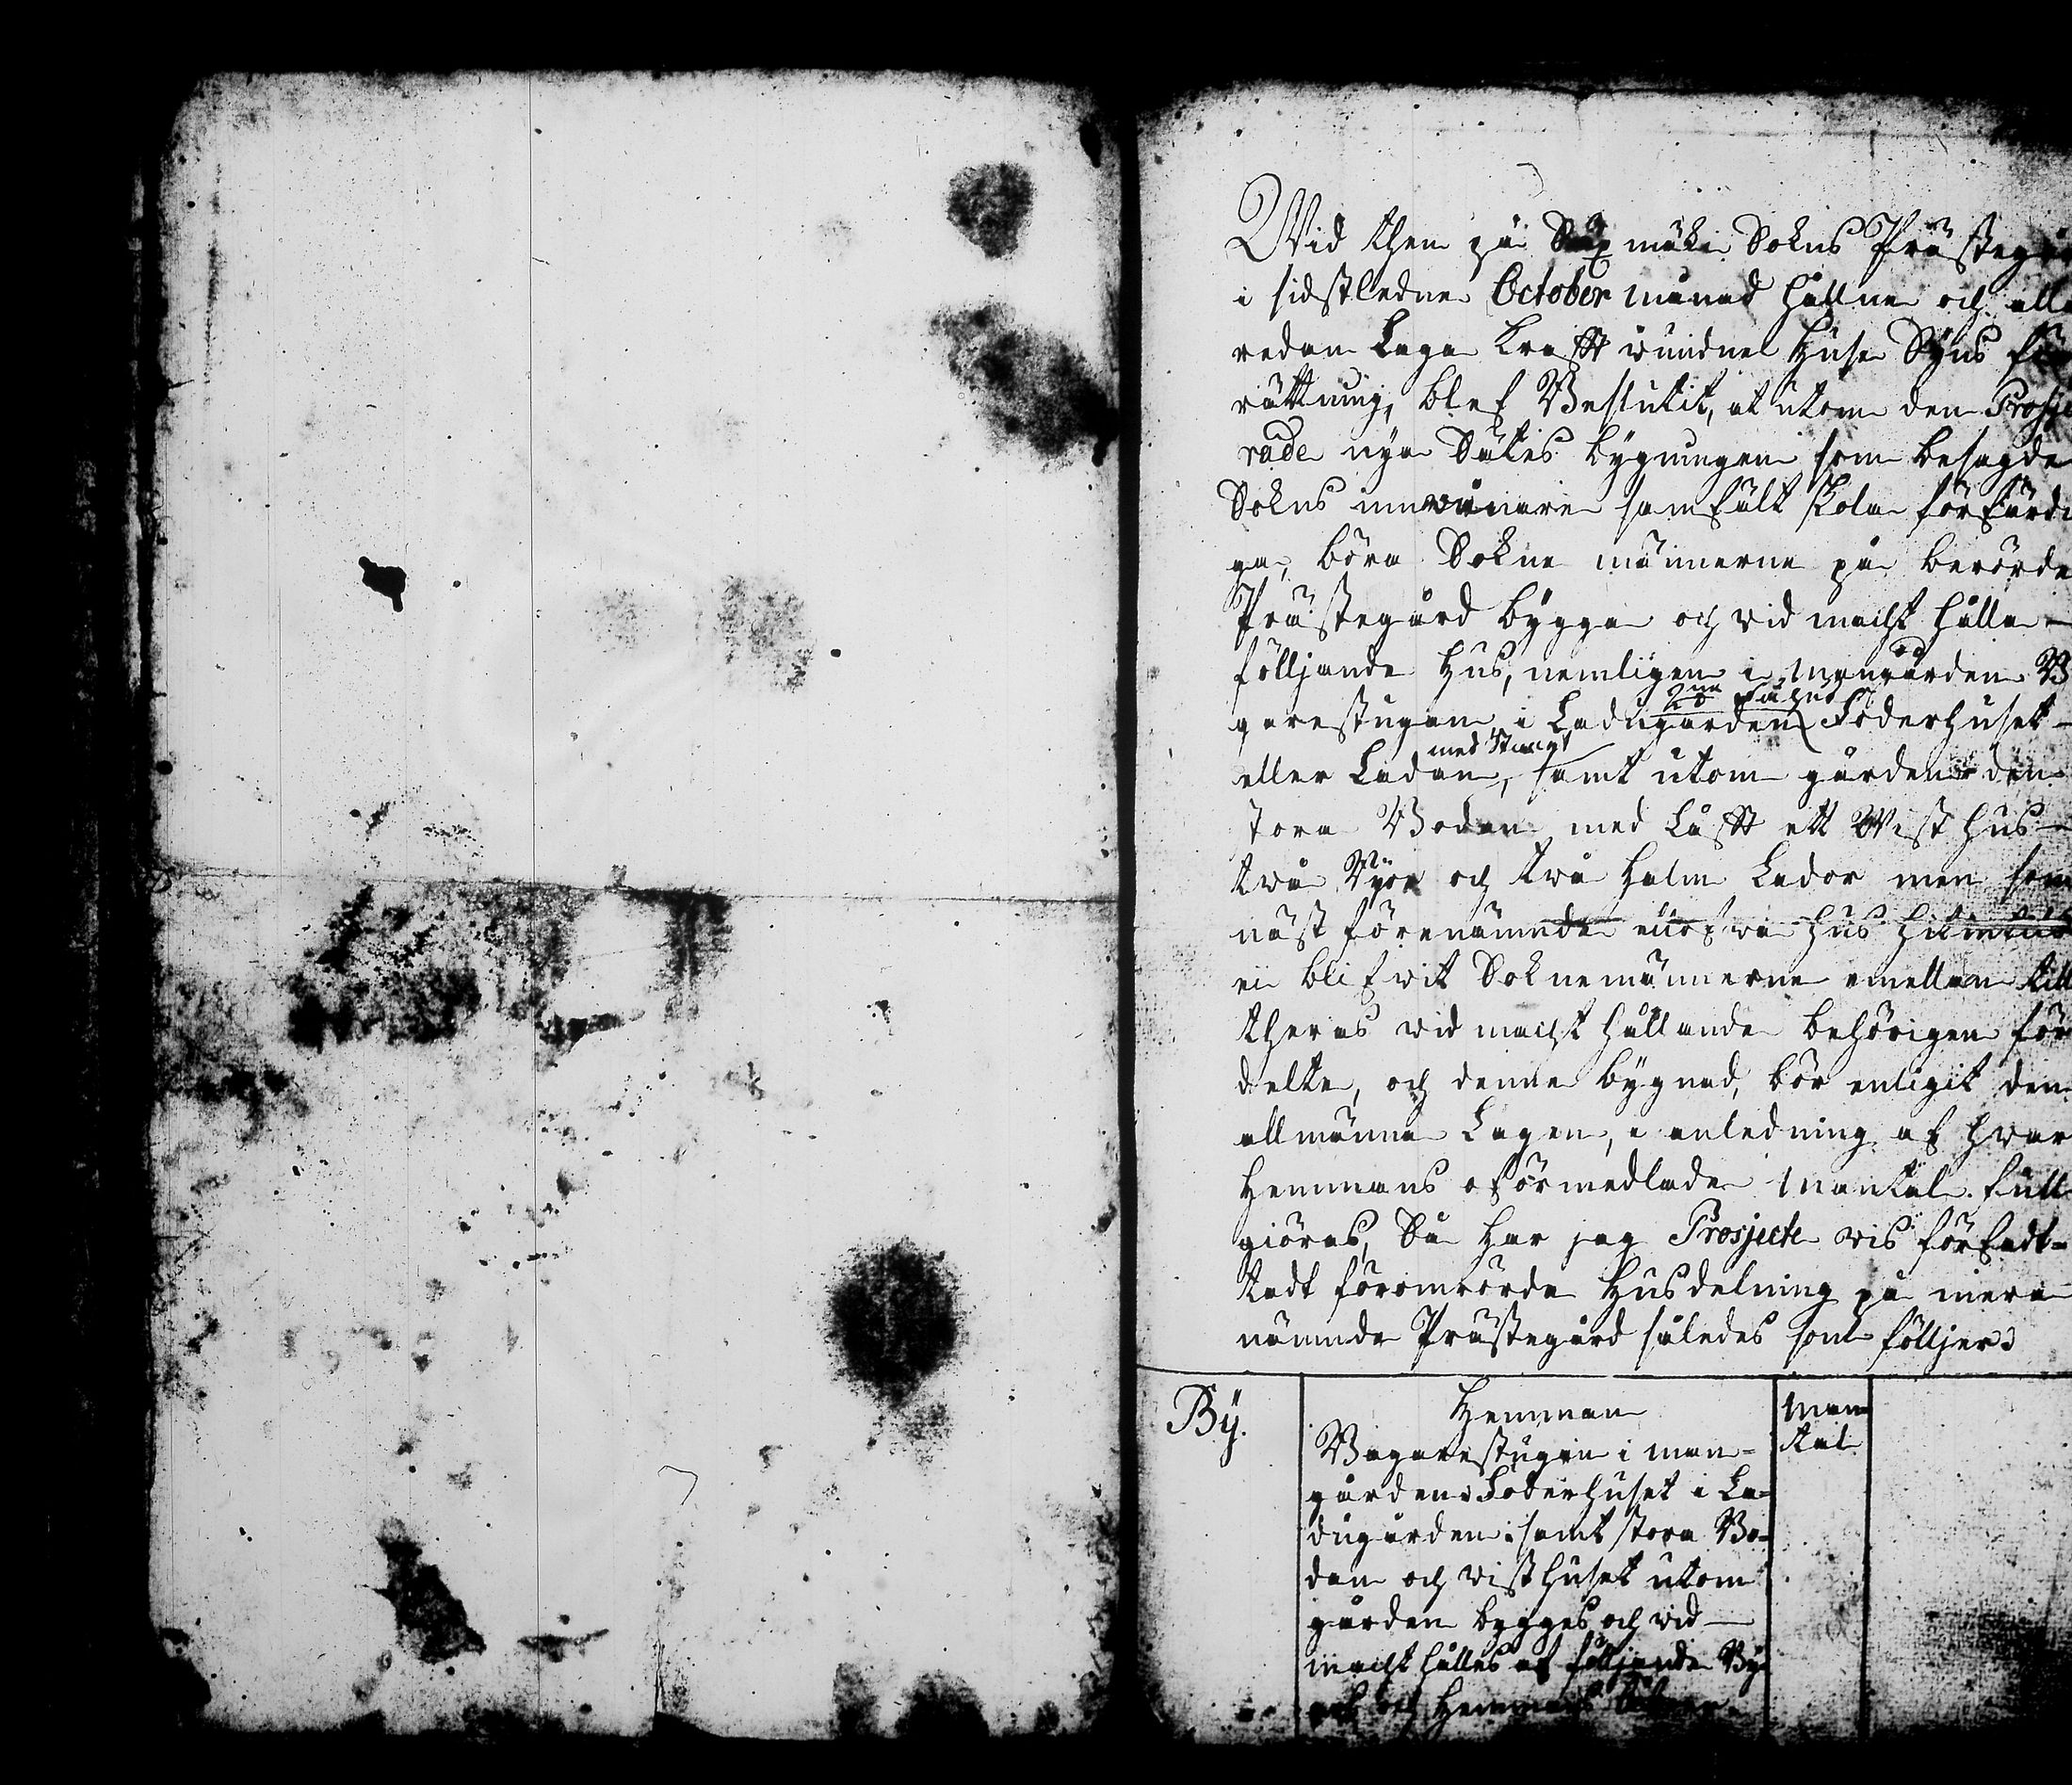 Wid then på Saxmäki Sokns Prästegår
i sidstledne October månad hållne och alla
redan Laga Krafft wundne Huse Syns för
rättning, blef Beslutit, at utom den Prosje
rade nya Sätes bygningen som besagde
Sokns innevånare samfält skola förfärdi
ga, böra Sokne männerne på berörde
Prästegård bygga och vid macht hålla
följjande Hus, nemligen i mangården B
2ne Fähus
garestugan, i Ladugården Foderhuset
med Stängt
eller Ladan, samt utom gården den
stora Boden med Lofft ett Wisthus
twå Ryor och twå Halm Lador men som
näst förenämnde Hus
ei blifwit Soknemännerne emellan till
theras vid macht hållande behörigen för
delte, och denne bygnad, bör enligit den
allmänna Lagen, i anledning af hvar
Hemmans oförmedlade mantal full
giöras, Så har jag Prosjecte vis förfadt-
tadt föromrörde Husdelning på mera
nämnde Prästegård således som följjer
By. Hemman Man
Bagarestugan i man= tal
gården Foderhuset i La=
dugården samt stora Bo=
den och visthuset utom
gården bygges och vid
macht hålles af följjande By
och Hemmans